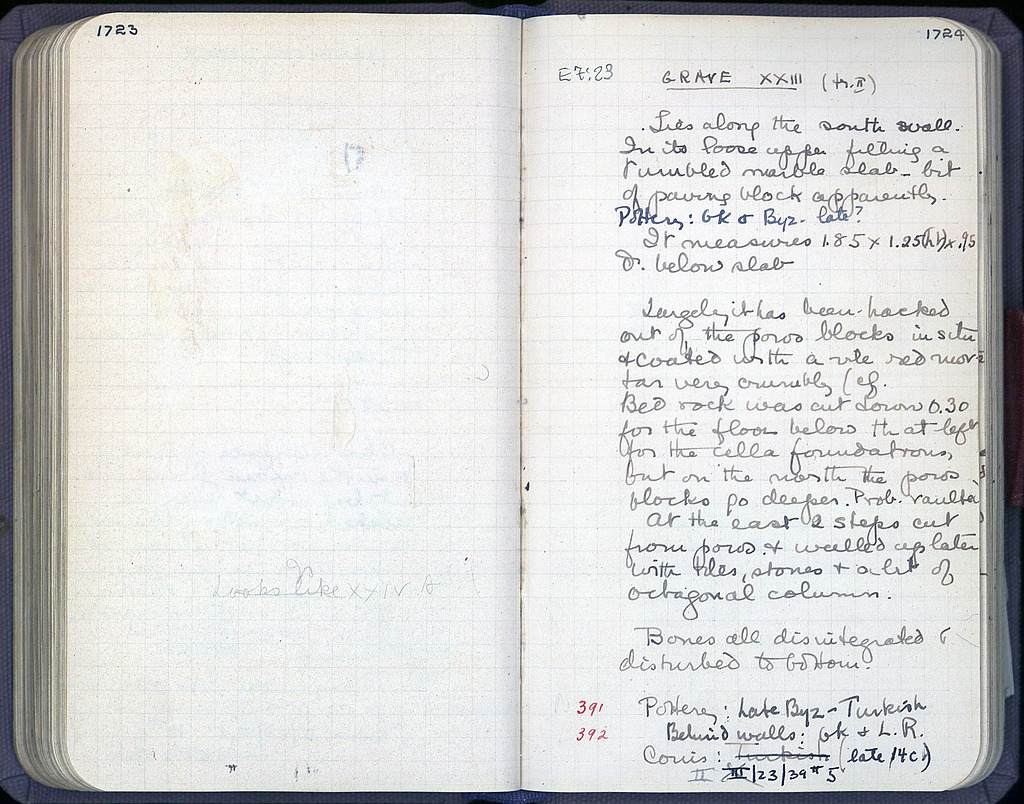 1723
Looks like XXIV A
1724
E 7:23 GRAVE XXIII (tr. II)
Lies along the south wall.
In its loose upper filling a
tumbled marble slab - bit
of paving block apparently.
Pottery: Gk & Byz - late?
It measures 1.85 x 1.25 (ht) x .95
below slab
Largely it has been hacked
out of the poros blocks in situ
& coated with a vile red mor-
tar very crumbly (cf.
Bed rock was cut down 0.30
for the floor below that left
for the cella foundations,
but on the north the poros
blocks go deeper. Prob. vaulted
At the east 2 steps cut
from poros & walled up later
with tiles, stones & a bit of
octagonal column.
Bones all disintegrated &
disturbed to bottom.
391 Pottery: Late Byz - Turkish
392 Behind walls: Gk & L.R.
Coins: Turkish (late 14c.)
II III/23/39 # 5